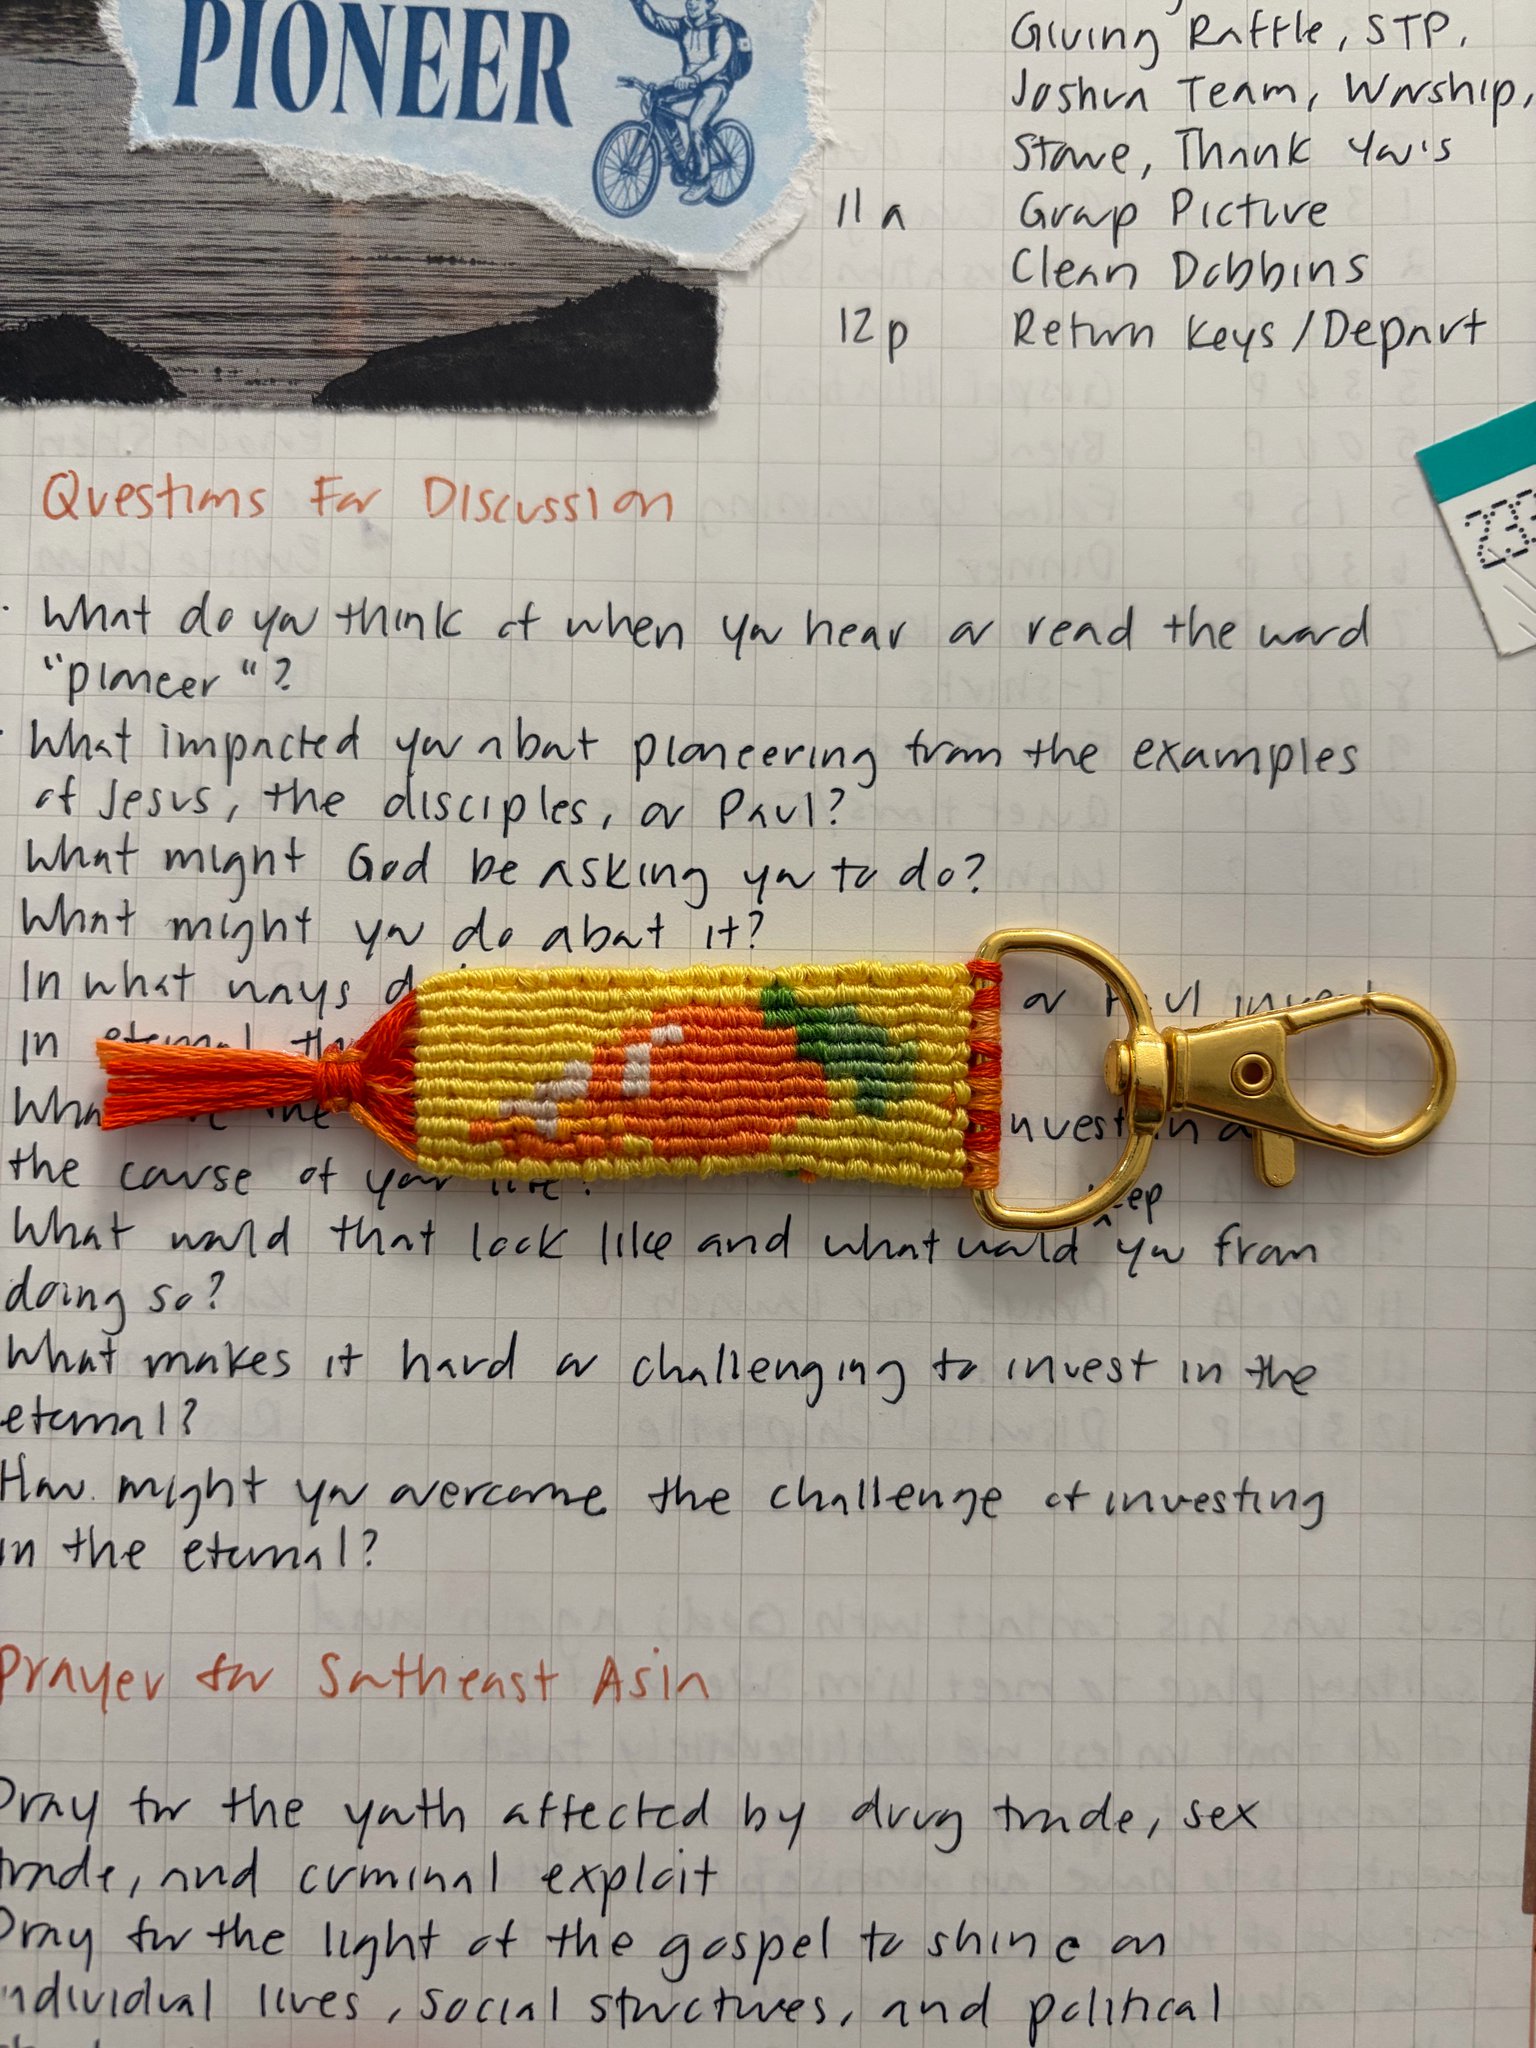 PIONEER
Giving Raffle, STP,
Joshua Team, Worship,
Stowe, Thank You's
11a Group Picture
Clean Dobbins
12p Return Keys / Depart
Questions For Discussion
· What do you think of when you hear or read the word
"pioneer"?
· What impacted you about pioneering from the examples
of Jesus, the disciples, or Paul?
What might God be asking you to do?
What might you do about it?
In what ways or Paul invest
in eternal
the
invest in a
the cause of your life?
What would that look like and what would keep you from
doing so?
What makes it hard or challenging to invest in the
eternal?
How might you overcome the challenge of investing
in the eternal?
Prayer for Southeast Asia
Pray for the youth affected by drug trade, sex
trade, and criminal exploit
Pray for the light of the gospel to shine on
individual lives, social structures, and political